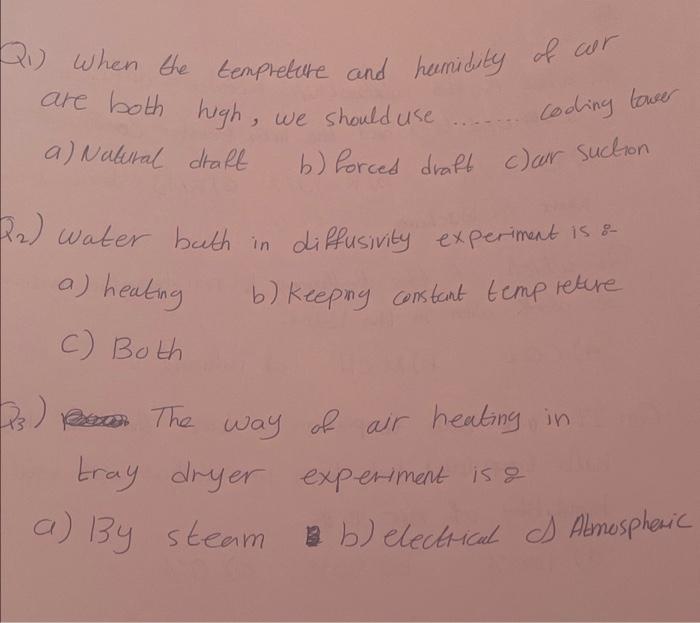 Q1) When the tempreture and humidity of air
are both high, we should use ....... cooling tower
a) Natural draft b) forced draft c) air suction
Q2) water bath in diffusivity experiment is :-
a) heating b) keeping constant temp reture
C) Both
Q3) The way of air heating in
tray dryer experiment is :
a) By steam b) electrical c) Atmospheric